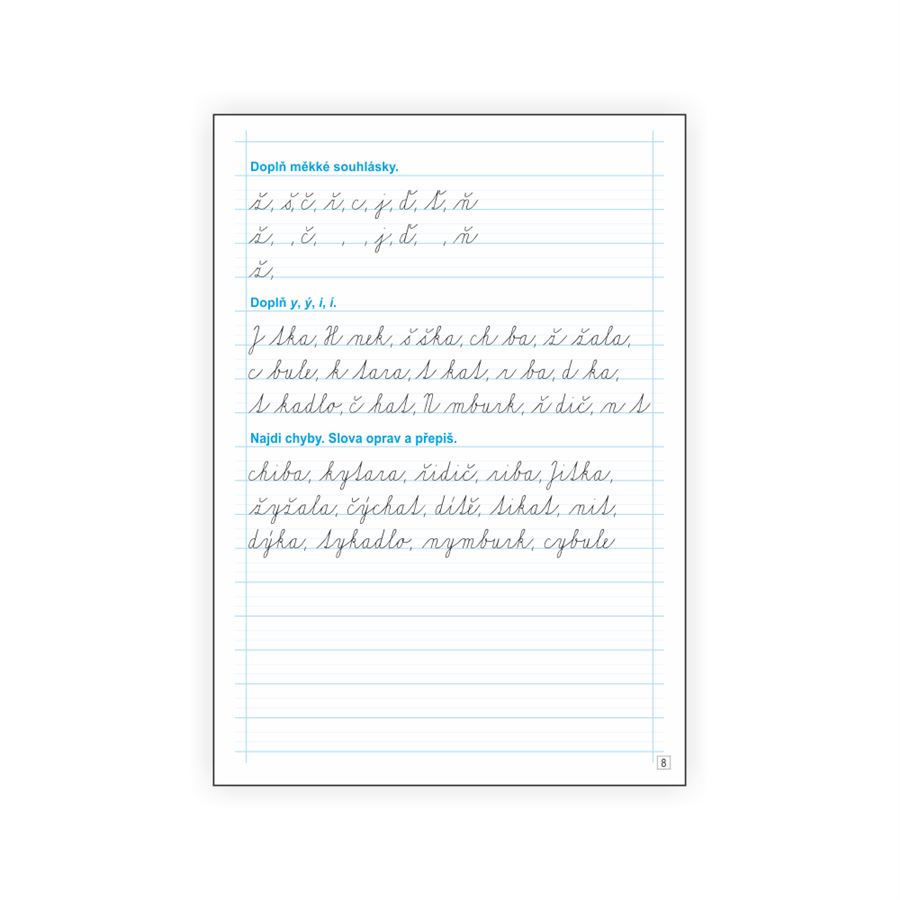 Doplň měkké souhlásky.
ž, š, č, ř, c, j, ď, ť, ň
ž,   , č,   ,   , j, ď,   , ň
ž,
Doplň y, ý, i, í.
J tka, H nek, š ška, ch ba, ž žala,
c bule, k tara, t kat, r ba, d ka,
t kadlo, č hat, N mburk, ř dič, n t
Najdi chyby. Slova oprav a přepiš.
chiba, kytara, řidič, riba, Jitka,
žyžala, čýchat, dítě, tikat, nit,
dýka, tykadlo, nymburk, cybule
8